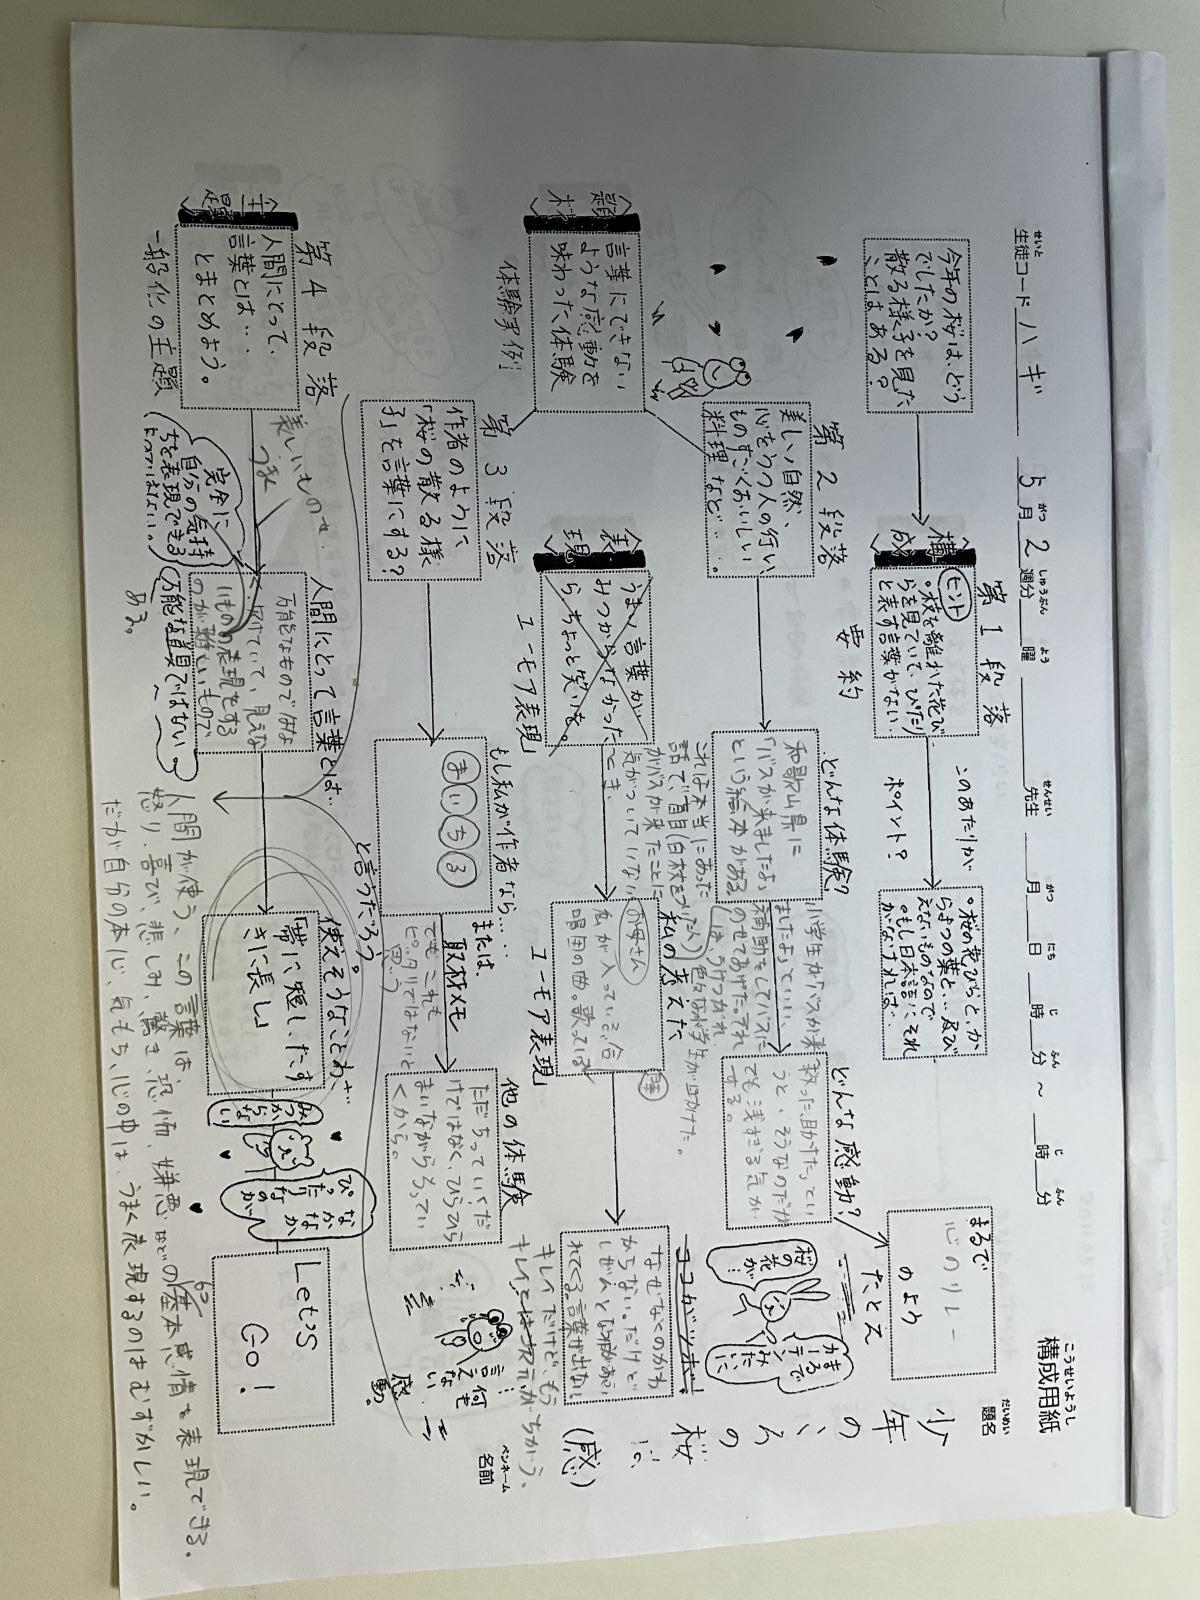 構成用紙
こうせいようし
生徒コード ハギ 5月2週分 曜 先生 月 日 時 分 ～ 時 分
せいと がつ しゅうぶん よう せんせい がつ にち じ ふん じ ふん
題名
だいめい
少年の心の桜
今年の桜は、どう
でしたか？
散る様子を見た
ことはある？
構成
第1段落
要約
ヒント
。枝を離れた花び
らを見ていて、ぴたり
と表す言葉がない
このあたりが
ポイント？
。桜の花びらと、か
らまつの葉と…及び
えないものなので
。もし日本語に、それ
がなければ…
まるで
心のリレー
のよう
たとえ
第2段落
美しい自然、
心をうつ人の行い、
ものすごくおいしい
料理など…。
どんな体験？
和歌山県に
「バスが来ましたよ」
という絵本がある
これは本当にあった
話で、盲目(白杖をついた人)
がバスが来たことに
気がついていない
とき、
小学生が「バスが来
ましたよ」といい、
補助をしてバスに
のせてあげた。それ
は、うけつがれ、
色々な小学生が助けた。
どんな感動？
救った、助けた、とい
うと、そうなのだが
でも浅すぎる気が
する。
桜の花が…
まるで
みたいに
題材
言葉にできない
ような感動を
味わった体験
体験事例
表現
うまい言葉が
みつからなかった
らちょっと笑いを。
ユーモア表現
私の考えた
ユーモア表現
お母さん
私が入っている、合
唱団の曲。歌っている
なぜなくのかわ
からない。だけどし
ぜんとなみだがあふ
れてくる。言葉が出ない
キレイだけどもう
キレイとは次元がちがう、
ココがツボ！
(感)
第3段落
作者のように
「桜の散る様
子」を言葉にする？
もし私が作者なら…
まいちる
と言うだろう。
または
取材メモ
でもこれも
ピッタリではないと
思う
他の体験
ただちっていくだ
けではなく、ひらひら
まいながらちってい
くから。
何も
言えない…
感動。
名前
ペンネーム
主題
第4段落
人間にとって、
言葉とは…
とまとめよう。
一般化の主題
完全に
自分の気持
ちを表現できる
人間にとって言葉とは…
万能なものではな
いものの表現をする
のが難しいもので
ある。
万能な道具ではない
使えそうなことわざ…
「帯に短したす
きに長し」
みつからない
ぴったりなのが
なかなか
Let's
GO!
人間が使う、この言葉は、
怒り、喜び、悲しみ、驚き、恐怖、嫌悪などの基本感情を表現できる。
だが自分の本心、気もち、心の中は、うまく表現するのはむずかしい。